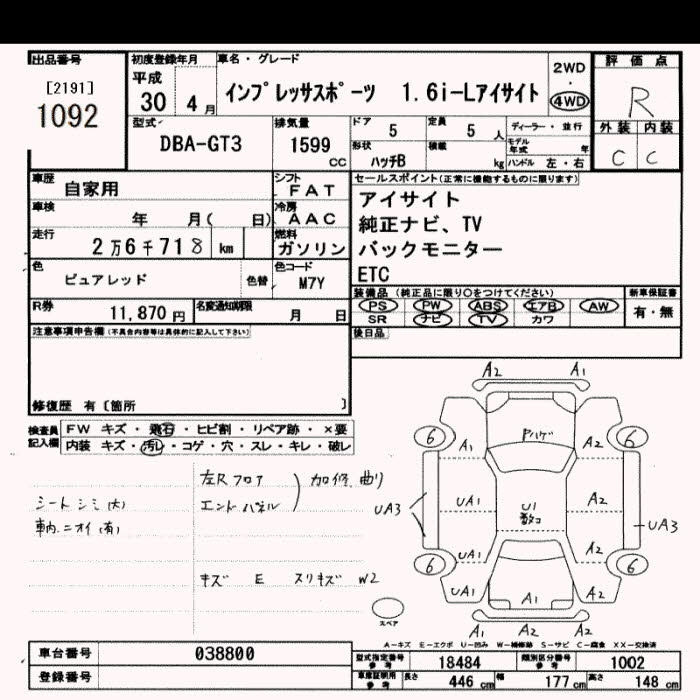 出品番号
[2191]
1092
初度登録年月
平成
30 4月
車名・グレード
インプレッサスポーツ 1.6i-Lアイサイト
2WD
・
4WD
評価点
R
外装 内装
C C
型式
DBA-GT3
排気量
1599
CC
ドア
5
定員
5 人
ディーラー・並行
形状
ハッチB
積載
kg
モデル年式 年
ハンドル 左・右
車歴
自家用
シフト
FAT
車検
年 月( 日)
冷房
AAC
走行
2万6千718 km
燃料
ガソリン
色
ピュアレッド
色替
色コード
M7Y
R券
11,870 円
名変通知期限
月 日
セールスポイント(正常に機能するものに限ります)
アイサイト
純正ナビ、TV
バックモニター
ETC
装備品 (純正品に限り○をつけてください)
PS PW ABS エアB AW
SR ナビ TV カワ
新車保証書
有・無
後日品
注意事項申告欄(不具合内容等は具体的に記入して下さい)
修復歴 有〔箇所 〕
検査員記入欄
FW キズ・飛石・ヒビ割・リペア跡・×要
内装 キズ・汚レ・コゲ・穴・スレ・キレ・破レ
シートシミ(大)
車内ニオイ(有)
左Rフロア
エンドパネル
加修、曲り
キズ E スリキズ W2
A2 A1
6 6
A1 Pハゲ A2
UA3 UA1 U1 A2 UA3
数コ
UA1 A2
6 6
UA1 A1 A2
A1 A2 A2
スペア
A－キズ E－エクボ U－凹み W－補修跡 S－サビ C－腐食 XX－交換済
車台番号 038800
登録番号
型式指定番号 参考 18484
類別区分番号 参考 1002
車庫証明用 参考 長さ 446 cm 幅 177 cm 高さ 148 cm